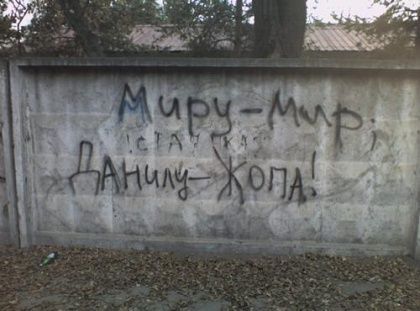 Миру-мир,
Данилу-Жопа!